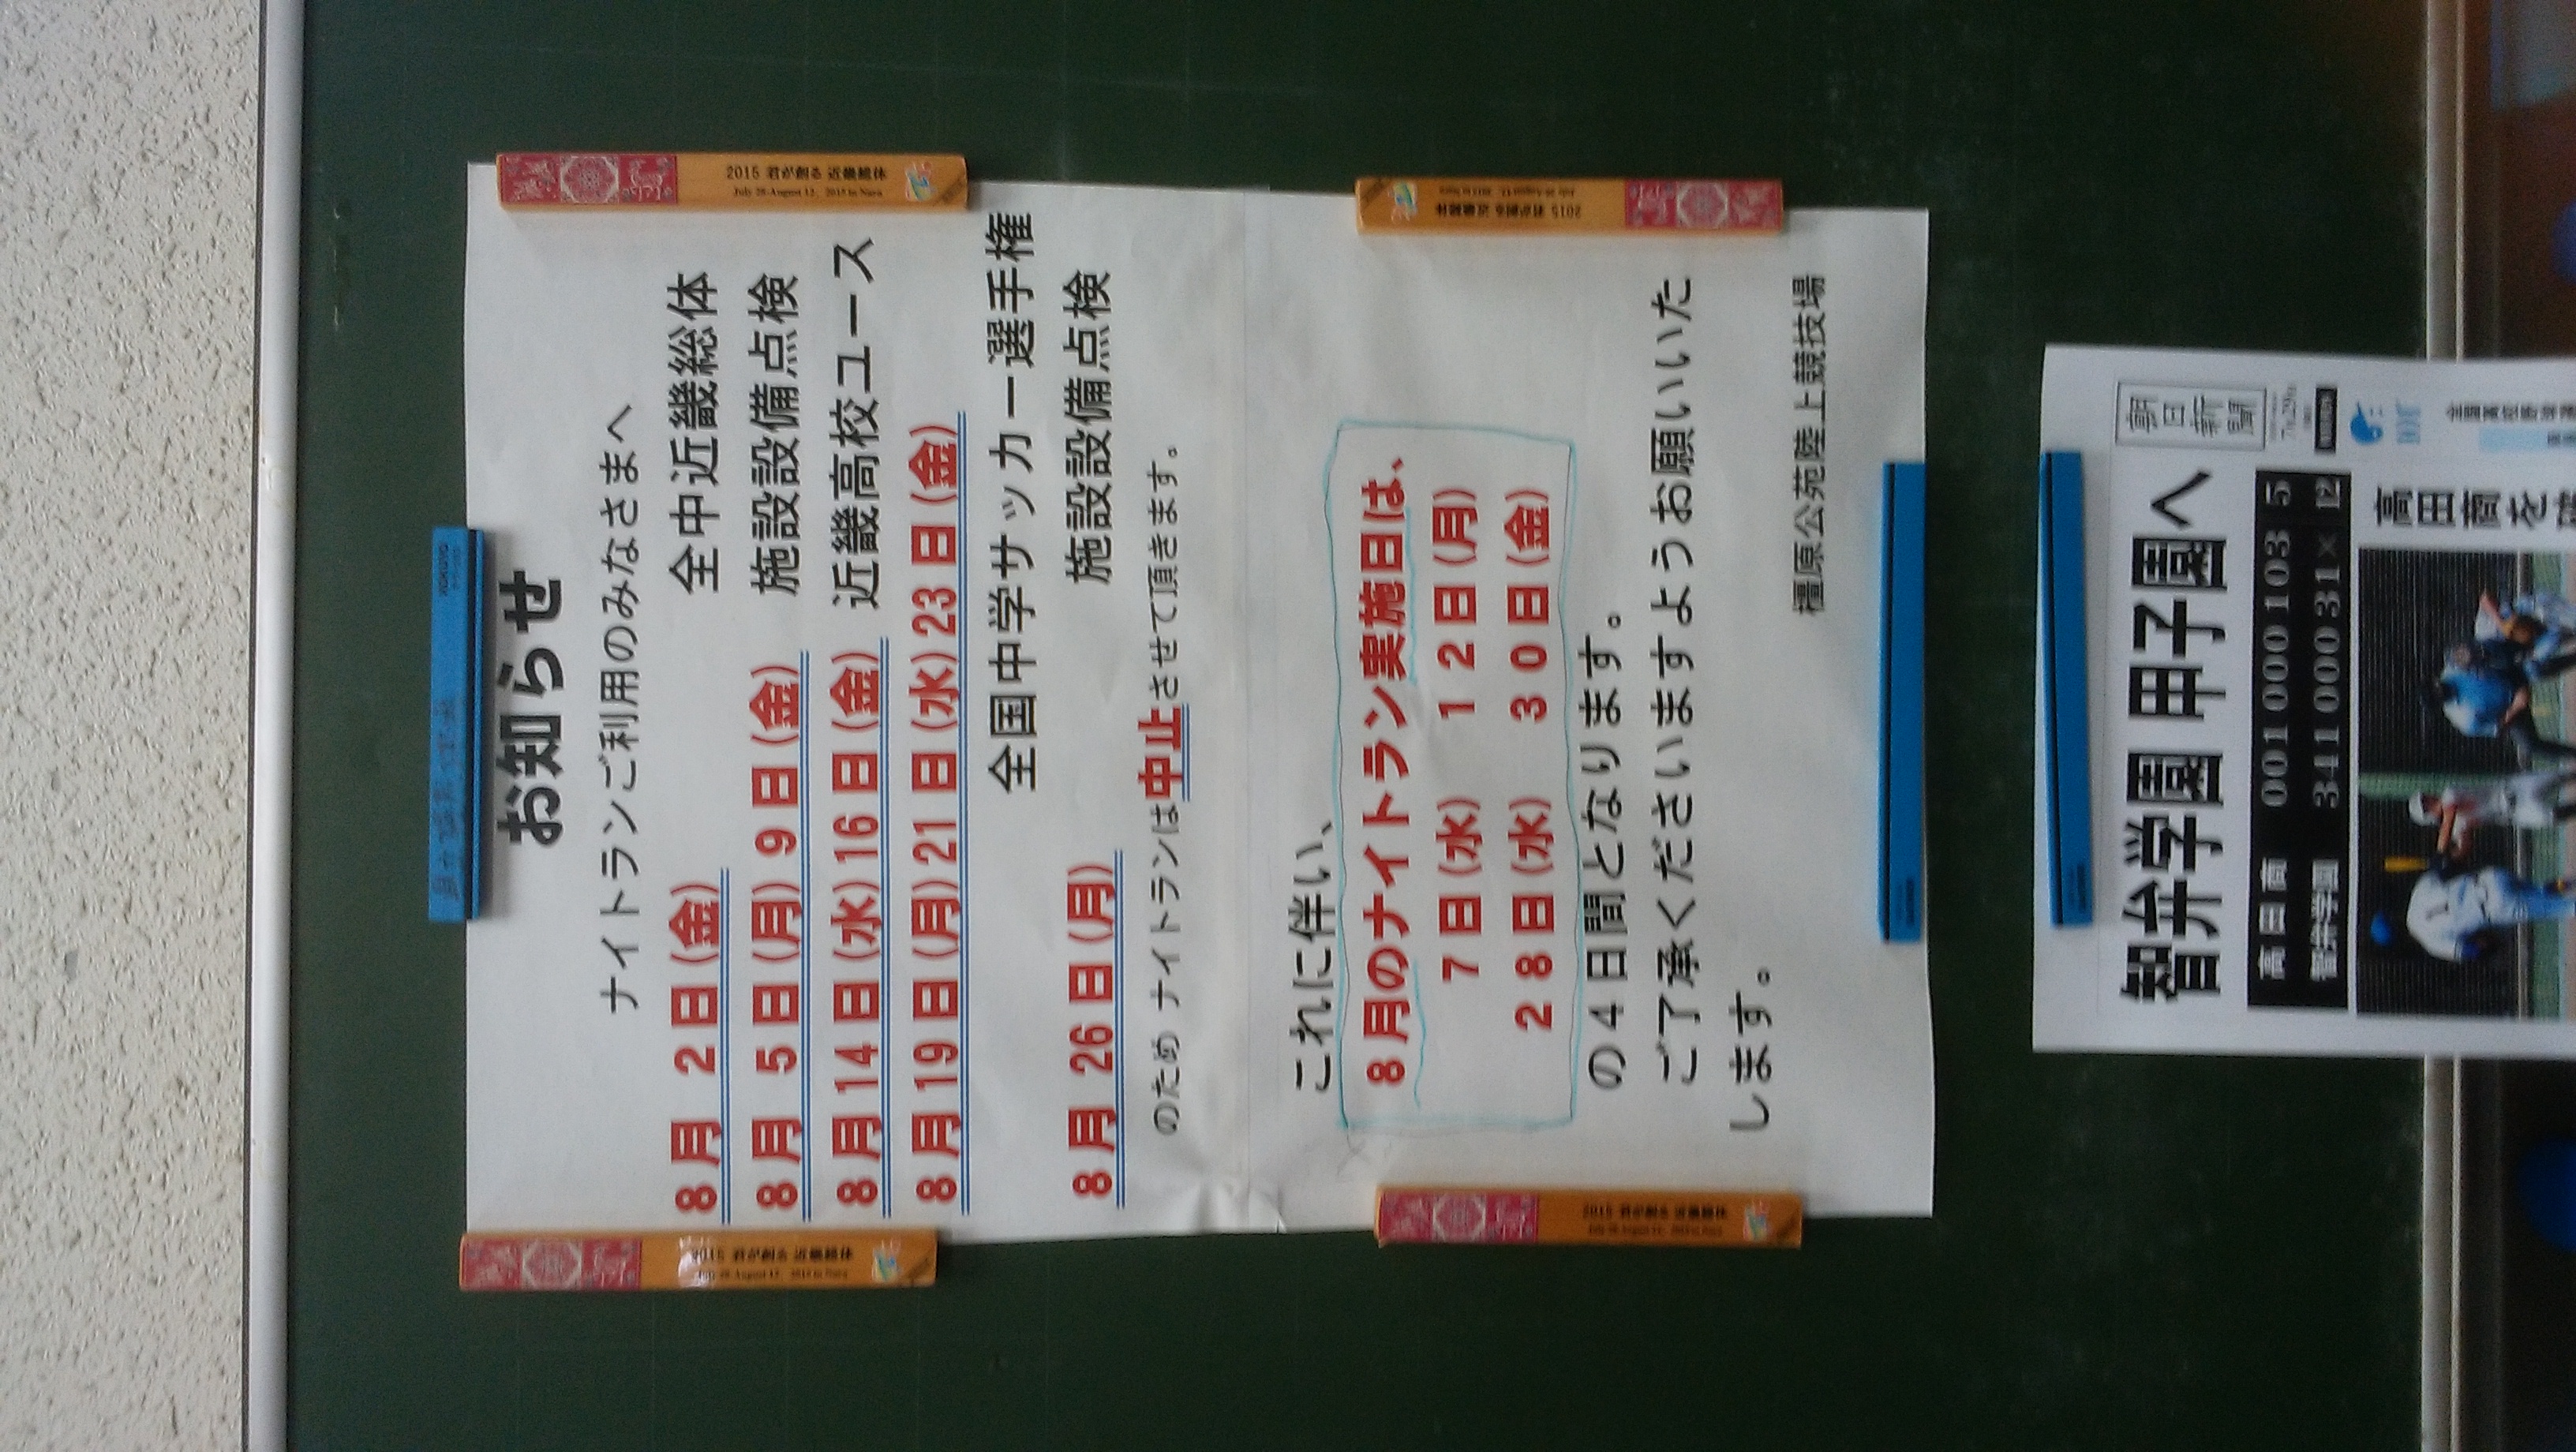 お知らせ
ナイトランご利用のみなさまへ
8月 2日(金) 全中近畿総体
8月 5日(月) 9日(金) 施設設備点検
8月14日(水)16日(金) 近畿高校ユース
8月19日(月)21日(水)23日(金)
全国中学サッカー選手権
8月 26日(月) 施設設備点検
のため ナイトランは中止させて頂きます。
これに伴い、
8月のナイトラン実施日は、
7日(水) 12日(月)
28日(水) 30日(金)
の4日間となります。
ご了承くださいますようお願いいた
します。
橿原公苑陸上競技場
2015 君が創る 近畿総体
July 28-August 12, 2015 in Nara
2015 君が創る 近畿総体
July 28-August 12, 2015 in Nara
2015 君が創る 近畿総体
2015 君が創る 近畿総体
智弁学園 甲子園へ
朝日新聞
7月29日
高田商 001 000 103 5
智弁学園 341 000 31× 12
高田商を